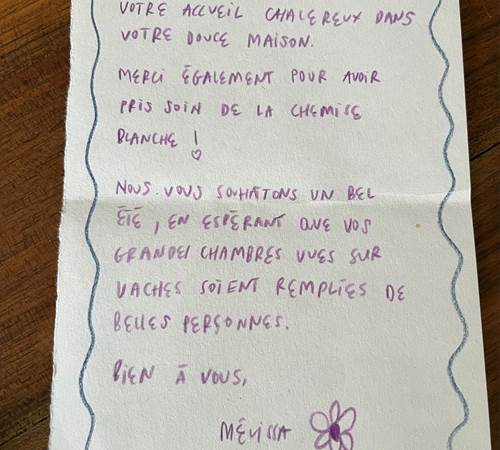 VOTRE ACCUEIL CHALEREUX DANS
VOTRE DOUCE MAISON.
MERCI ÉGALEMENT POUR AVOIR
PRIS SOIN DE LA CHEMISE
BLANCHE !
NOUS VOUS SOUHAITONS UN BEL
ÉTÉ, EN ESPÉRANT QUE VOS
GRANDES CHAMBRES VUES SUR
VACHES SOIENT REMPLIES DE
BELLES PERSONNES.
BIEN À VOUS,
MÉLISSA